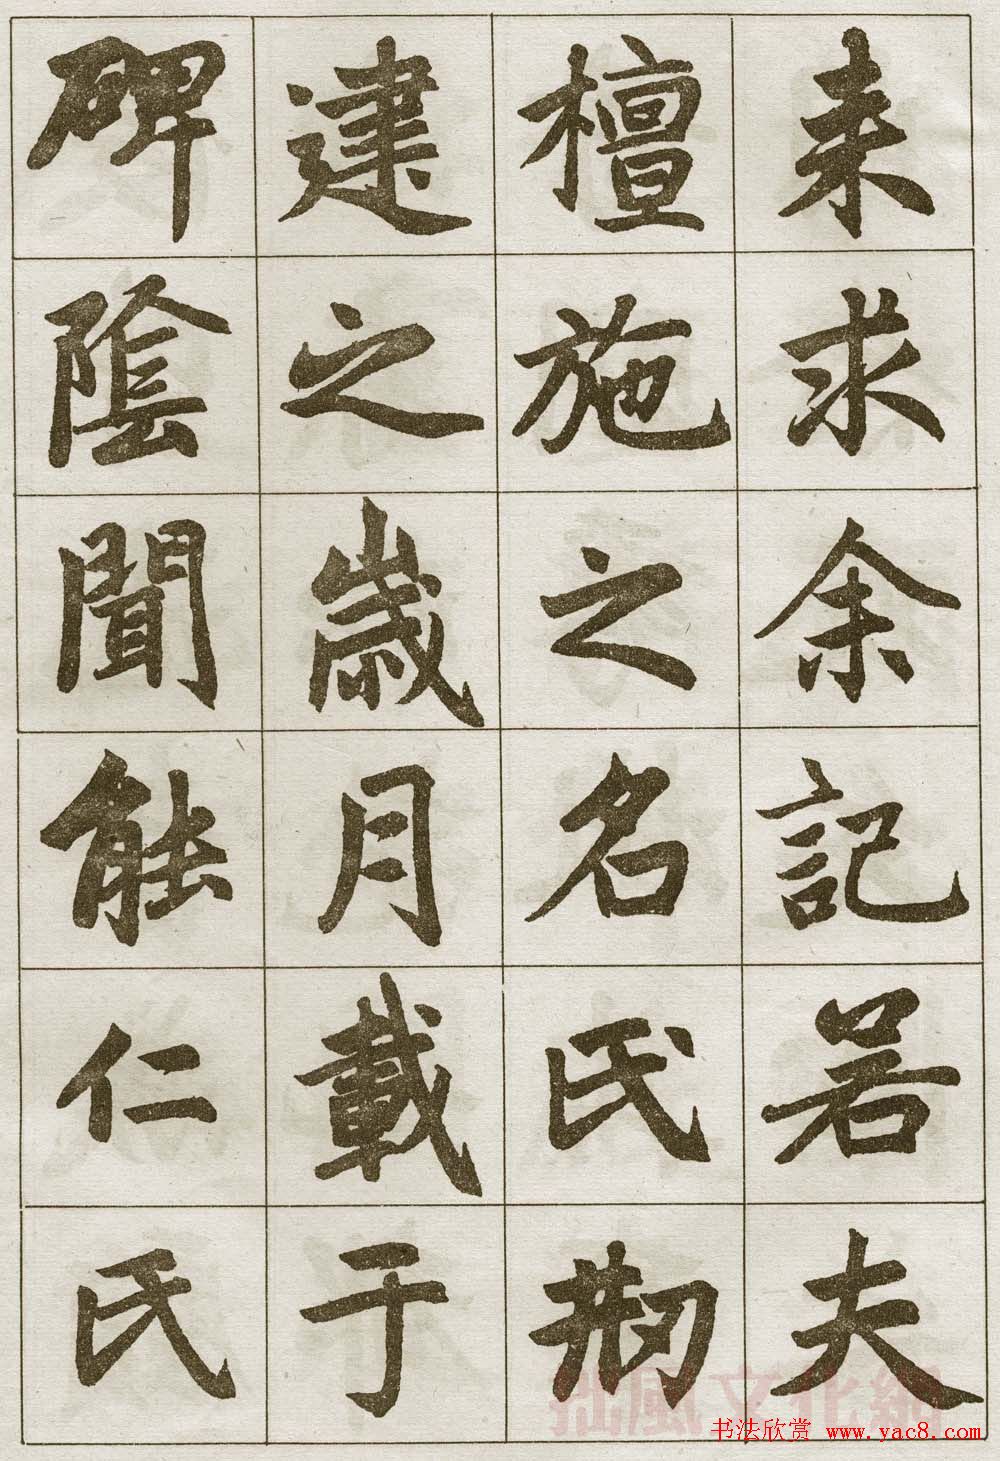 来求余記若夫
檀施之名氏刱
建之歲月載于
碑陰聞能仁氏
书法欣赏 www.yac8.com